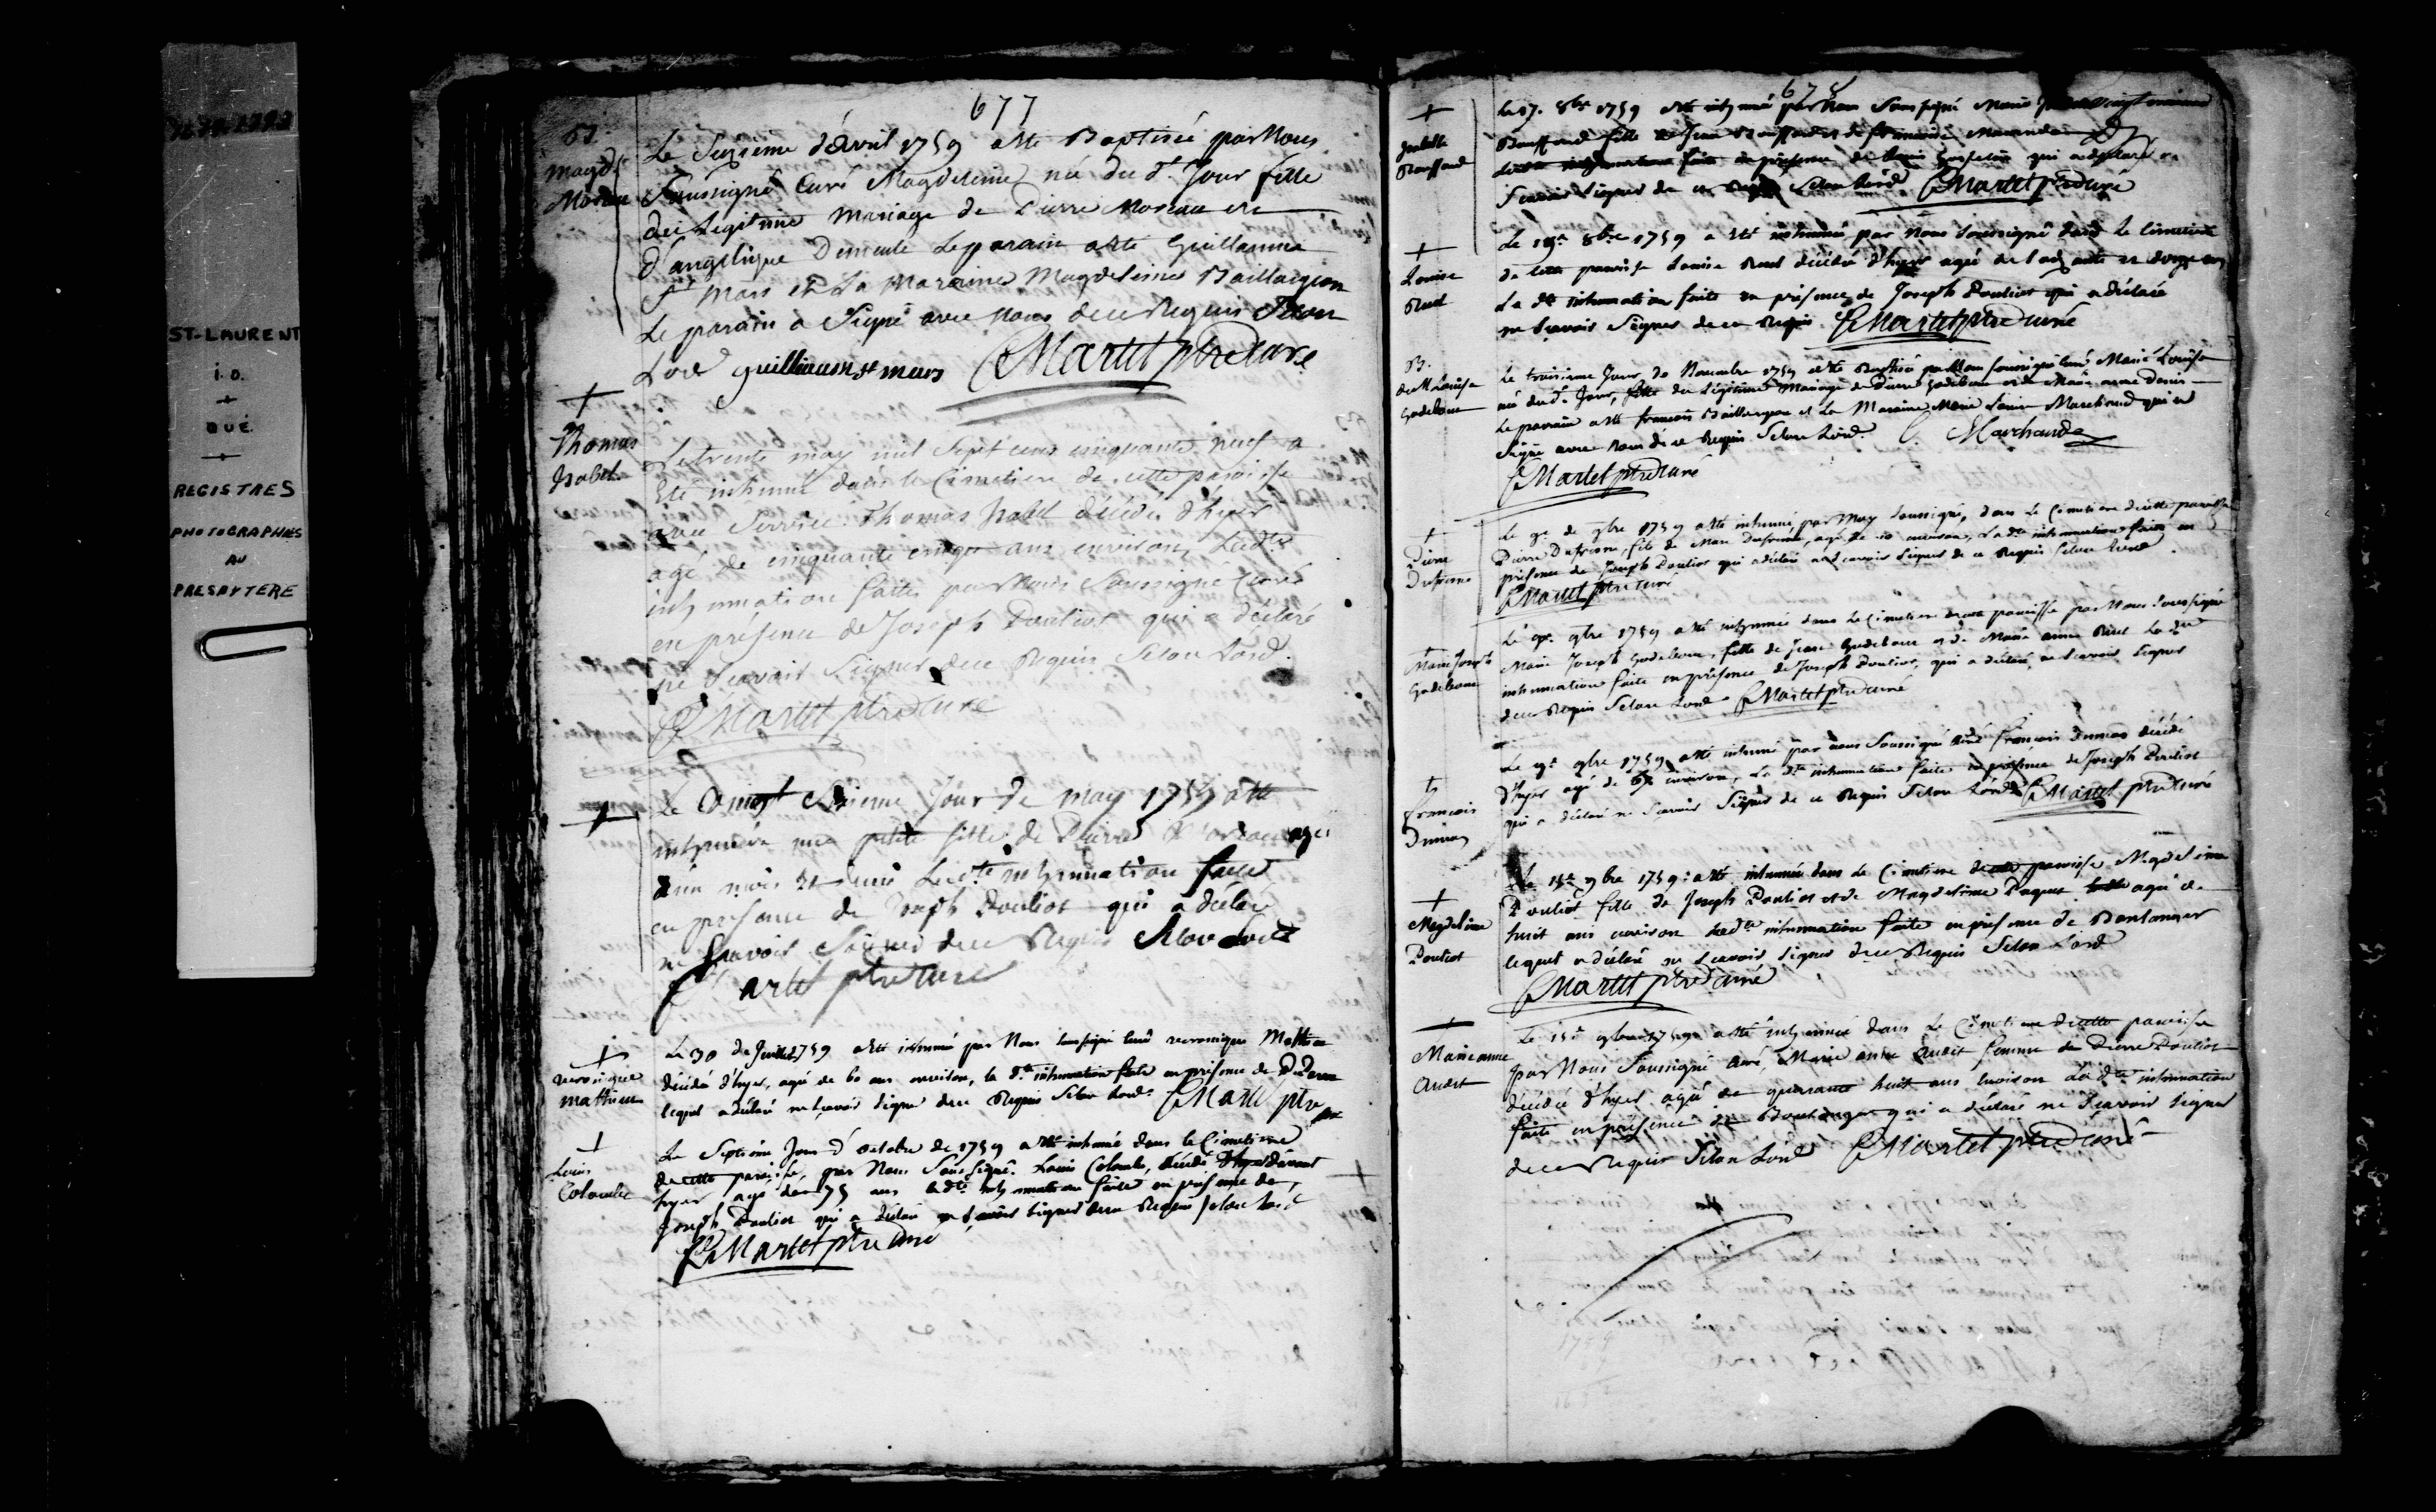 ST-LAURENT
i.o.
QUÉ.
REGISTRES
PHOTOGRAPHIES
AU
PRESBYTERE
677
B.
Magd.
Moreau
Le Sezieme d'avril 1759 a été Baptisée par Nous
Soussigné Curé Magdeleine née du dt. Jour fille
du Legitime Mariage de Pierre Moreau et
d'angelique Le parain a été Guillaume
st mars et La Maraine Magdeleine Baillargeon
Le parain a Signé avec Nous de ce Requis Selon
Lord guilliaum st mars Martel ptre Curé
Thomas
Isabel
Le trente may mil Sept cens cinquante neuf a
Eté inhumé dans le Cimetiere de cette paroisse
avec Service Thomas Isabel décédé d'hyer
agé de cinquante cinq ans environ, Ladte
inhumation faite par Nous Soussigné Curé
en présence de Joseph Pouliot qui a déclaré
ne Scavoir Signer de ce Requis Selon Lord.
Martel ptre Curé
Jour de may 1759 a été
inhumée une petite fille de Pierre agée
d'un mois et demie Ladte inhumation faite
en présence de Joseph Pouliot qui a déclaré
ne Scavoir Signer de ce Requis Selon Lord
Martel ptre Curé
veronique
mathieu
Le 30 de Juillet 1759 a été inhumé par Nous soussigné Curé veronique Mathieu
décédée d'hyer, agé de 60 ans environ, la dte inhumation faite en présence de
lequel a déclaré ne scavoir signer de ce Requis Selon Lord. Martel ptre
Louis
Colombe
Le Septiéme Jour d'octobre de 1759 a été inhumé dans le Cimetiere
de cette paroisse, par Nous Soussigné. Louis Colombe, décédé
hyer agé de 75 ans ladte inhumation faite en présence de
Joseph Pouliot qui a déclaré ne Scavoir Signer de ce Requis Selon Lord
Martel ptre Curé
678
Bouffard
Le 17. 8bre 1759 a été inhumée par Nous Soussigné Marie
Bouffard fille de Jean Bouffard et de
Ladte inhumation faite en présence de Louis qui a déclaré ne
Scavoir Signer de ce Requis Selon Lord. Martel ptre Curé
Louise
Ruel
Le 8bre 1759 a été inhumée par Nous Soussigné dans le Cimetiere
de cette paroisse Louise Ruel décédée d'hyer agée de
La dte inhumation faite en présence de Joseph Pouliot qui a déclaré
ne Scavoir Signer de ce Requis Martel ptre Curé
B.
de M. Louise
Godebout
Le troisieme Jour de Novembre 1759 a été Baptisée par Nous soussigné Curé Marie Louise
née dudt. Jour, fille du Légitime Mariage de Pierre Godebout et de Marie anne Denis
Le parain a été francois Baillargeon et La Maraine Marie Louise Marchand qui a
Signé avec Nous de ce Requis Selon Lord. Marchand
Martel ptre Curé
Pierre
Dufresne
Le 9bre 1759 a été inhumé, par Moy Soussigné, dans Le Cimetiere de cette paroisse
Pierre Dufresne, fils de Marc Dufresne, agé de 10 environ, La dte inhumation faite en
présence de Joseph Pouliot qui a déclaré ne scavoir Signer de ce Requis Selon Lord.
Martel ptre Curé
Marie Joseph
Godebout
Le 9bre 1759 a été inhumée dans Le Cimetiere de cette paroisse par Nous Soussigné
Marie Joseph Godebout, fille de Jean Godebout et de Marie anne Ruel La dte
inhumation faite en présence de Joseph Pouliot, qui a déclaré ne Scavoir Signer
de ce Requis Selon Lord. Martel ptre Curé
francois
Dumas
Le 9bre 1759 a été inhumé par nous Soussigné Curé francois Dumas décédé
d'hyer agé de environ, La dte inhumation faite en présence de Joseph Pouliot
qui a déclaré ne Scavoir Signer de ce Requis Selon Lord. Martel ptre Curé
Magdeleine
Pouliot
Le 9bre 1759. a été inhumée dans le Cimetiere de cette paroisse Magdeleine
Pouliot fille de Joseph Pouliot et de Magdeleine Paquet agée de
huit ans environ Ladte inhumation faite en présence de Boulanger
lequel a déclaré ne Scavoir Signer de ce Requis Selon Lord
Martel ptre Curé
Marie anne
Audet
Le 9bre 1759 a été inhumée dans Le Cimetiere de cette paroisse
par Nous Soussigné Curé, Marie anne Audet femme de Pierre Pouliot
décédée d'hyer agée de quarante huit ans environ La dte inhumation
faite en présence de Boulanger qui a déclaré ne Scavoir Signer
de ce Requis Selon Lord Martel ptre Curé